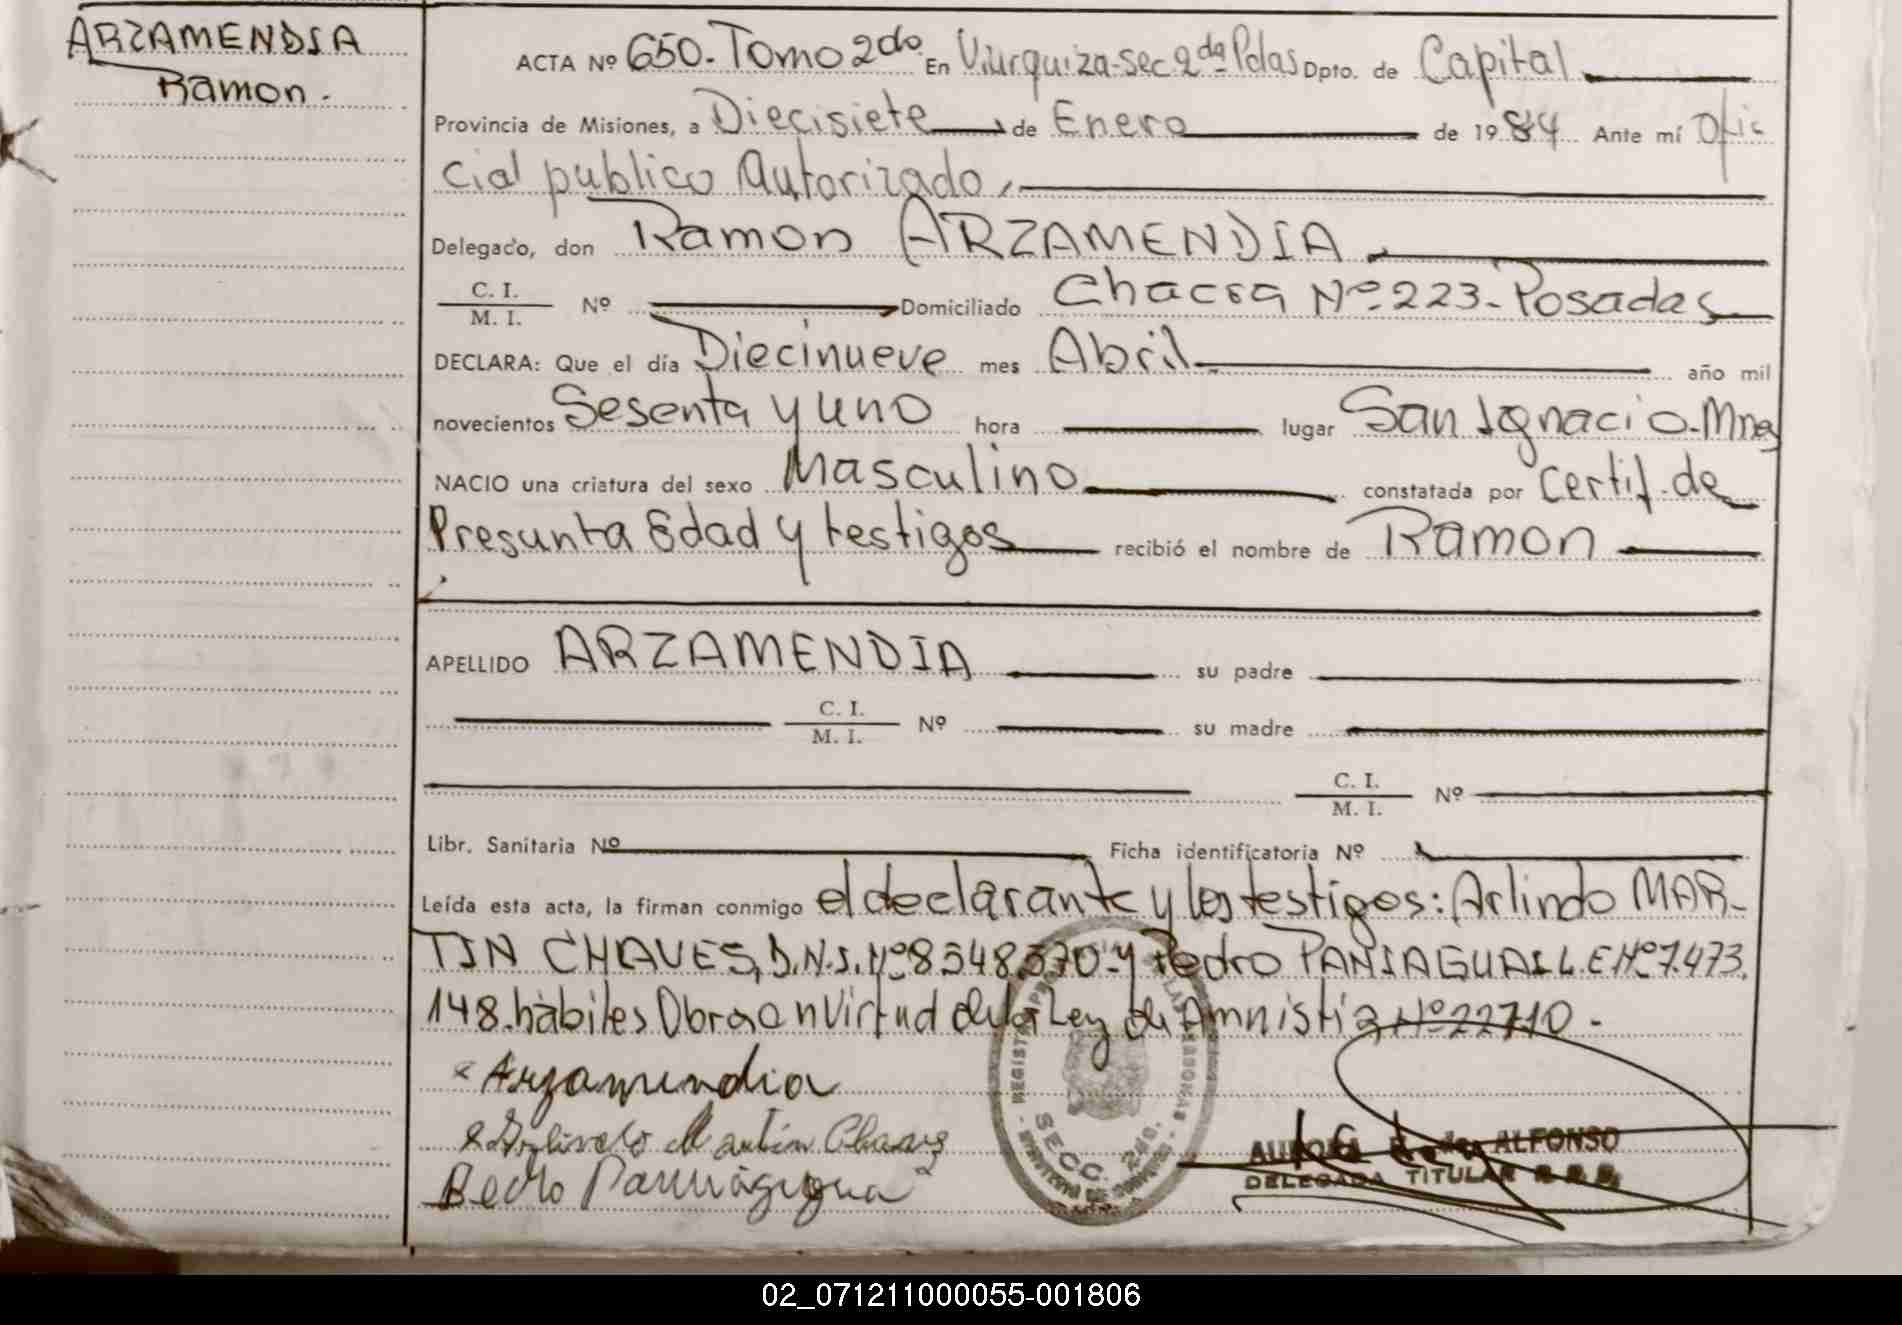 ARZAMENDIA
Ramon.
ACTA Nº 650. Tomo 2do. En V.Urquiza-Sec 2da Pdas Dpto. de Capital
Provincia de Misiones, a Diecisiete de Enero de 1984 Ante mí Ofic
cial publico Autorizado,
Delegado, don Ramon ARZAMENDIA
C. I.
M. I. Nº Domiciliado Chacra Nº 223-Posadas
DECLARA: Que el día Diecinueve mes Abril año mil
novecientos Sesenta y uno hora lugar San Ignacio-Mnes
NACIO una criatura del sexo Masculino constatada por Certif. de
Presunta Edad y testigos recibió el nombre de Ramon
APELLIDO ARZAMENDIA su padre
C. I.
M. I. Nº su madre
C. I.
M. I. Nº
Libr. Sanitaria Nº Ficha identificatoria Nº
Leída esta acta, la firman conmigo el declarante y los testigos: Arlindo MAR-
TIN CHAVES, D.N.I. Nº 8548570-y Pedro PANIAGUA L.E Nº 7.473.
148. hàbiles Obra en Virtud de la Ley de Amnistia Nº 22710.
Arzamendia
Martin Chavez
Pedro
SECC. 2da.
ALFONSO
DELEGADA TITULAR
02_071211000055-001806